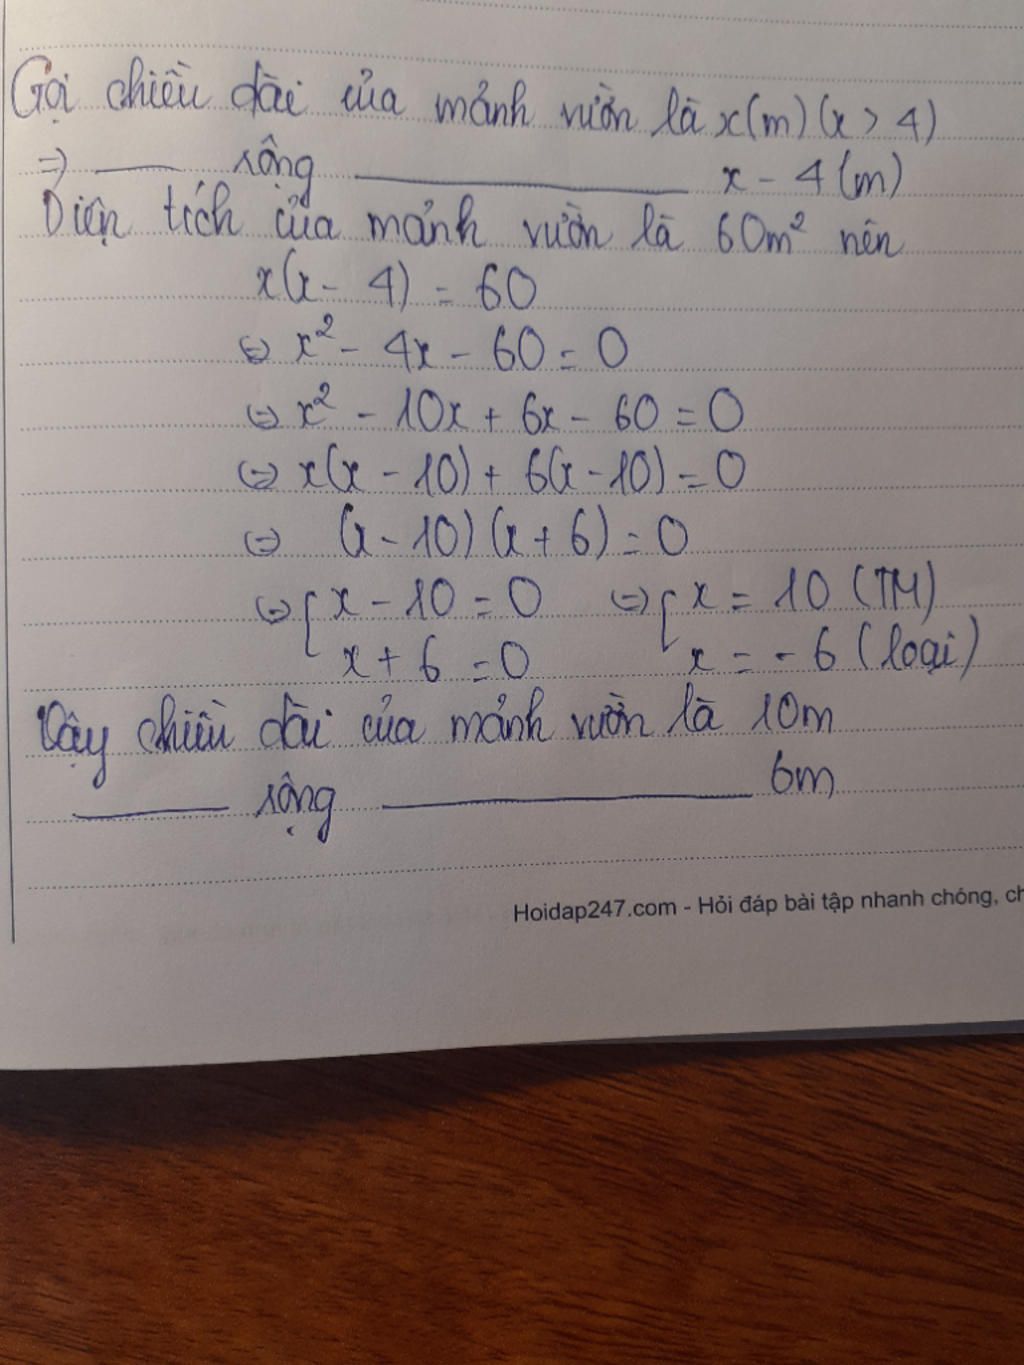 Gọi chiều dài của mảnh vườn là x(m) (x > 4)
=> ___ rộng ___ x - 4 (m)
Diện tích của mảnh vườn là 60m² nên
x(x - 4) = 60
⇔ x² - 4x - 60 = 0
⇔ x² - 10x + 6x - 60 = 0
⇔ x(x - 10) + 6(x - 10) = 0
⇔ (x - 10) (x + 6) = 0
⇔ [ x - 10 = 0 ⇔ [ x = 10 (TM)
x + 6 = 0 x = - 6 (loại)
Vậy chiều dài của mảnh vườn là 10m
___ rộng ___ 6m
Hoidap247.com - Hỏi đáp bài tập nhanh chóng, ch